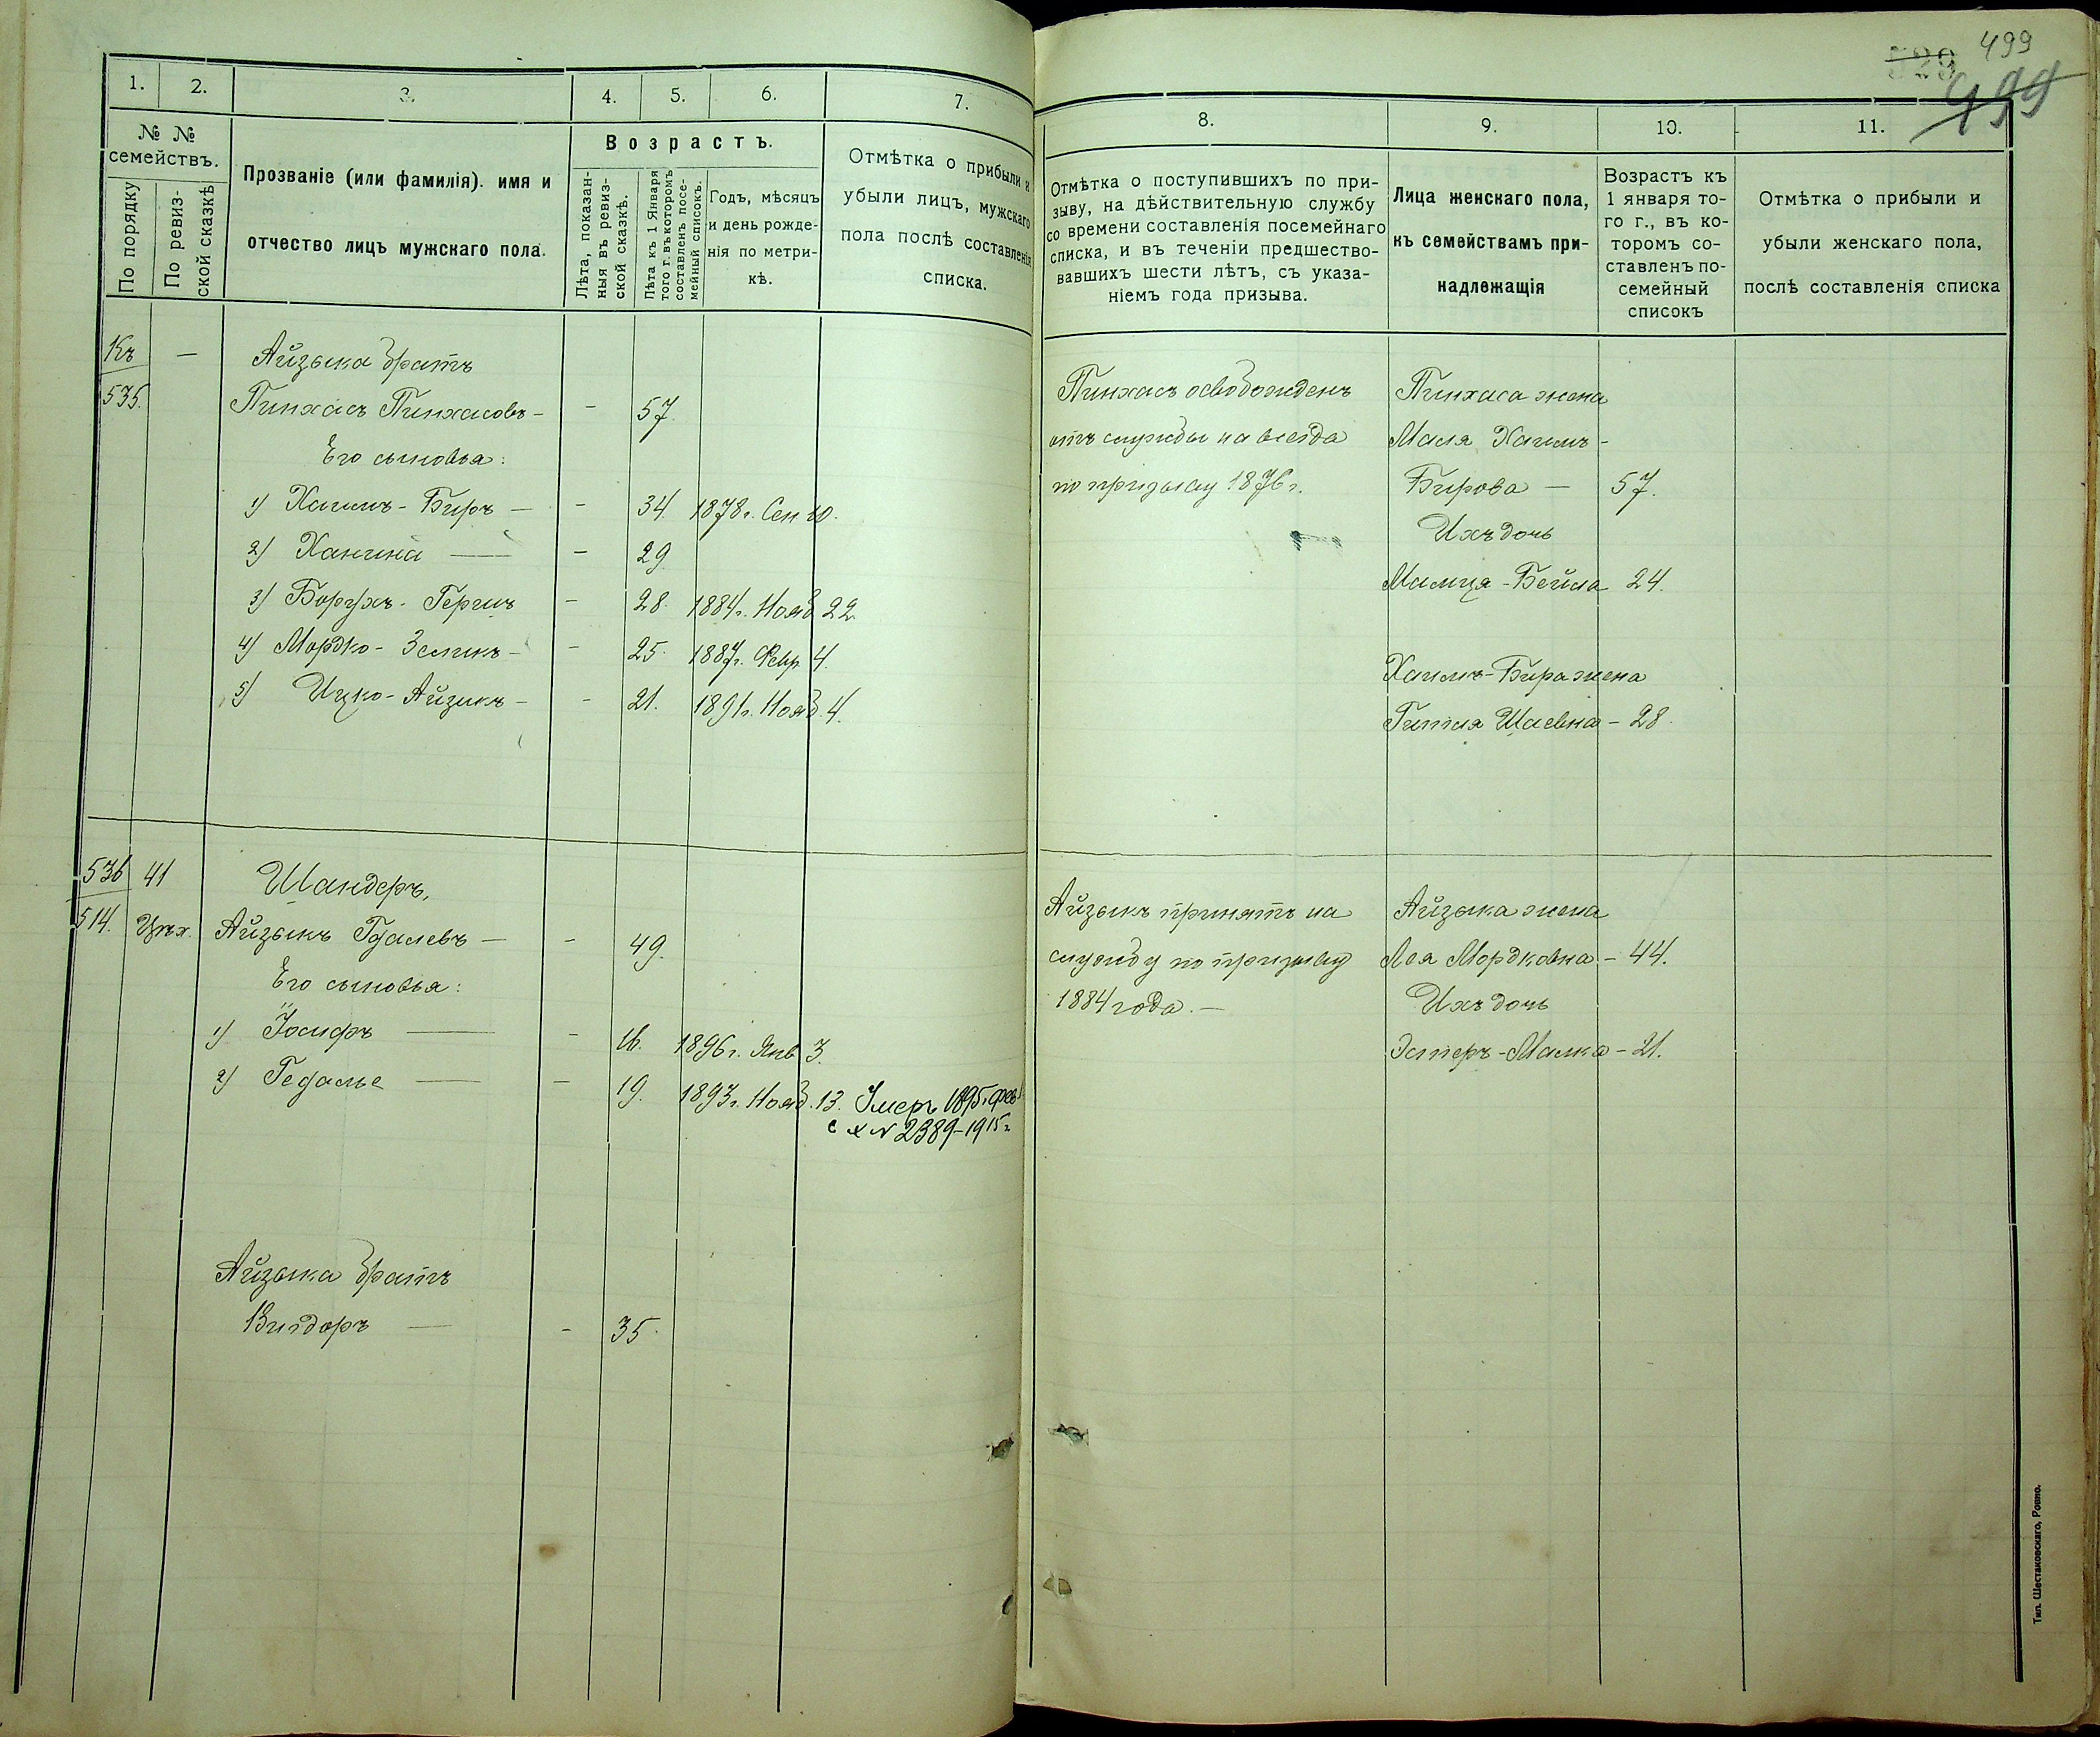 1. 2. 3. 4. 5. 6. 7.
№ № семействъ.
По порядку
По ревиз-
ской сказкѣ
Прозваніе (или фамилія). имя и
отчество лицъ мужскаго пола.
Возрастъ.
Лѣта, показан-
ныя въ ревиз-
ской сказкѣ.
Лѣта къ 1 Января
того г. въ которомъ
составленъ посе-
мейный списокъ.
Годъ, мѣсяцъ
и день рожде-
нія по метри-
кѣ.
Отмѣтка о прибыли и
убыли лицъ, мужскаго
пола послѣ составленія
списка.
Къ — Айзыка братъ
535. Пинхасъ Пинхасовъ - - 57.
Его сыновья:
1) Хаимъ-Биръ — - 34. 1878 г. Сен. 10.
2) Ханина — - 29
3) Борухъ-Гершъ - 28. 1884 г. Нояб 22.
4) Мордко-Зеликъ - - 25. 1887 г. Февр. 4.
5) Ицко-Айзикъ - - 21. 1891 г. Нояб. 4.
536 41 Шандеръ,
514. Цех. Айзыкъ Гдалевъ — - 49.
Его сыновья:
1) Іосифъ — - 16. 1896 г. Янв 3.
2) Гедалье — - 19. 1893 г. Нояб. 13. Умеръ 1895 г. фев
№ 2389-1915 г
Айзыка братъ
Вигдоръ — - 35.
529 499
499
8. 9. 10. 11.
Отмѣтка о поступившихъ по при-
зыву, на дѣйствительную службу
со времени составленія посемейнаго
списка, и въ теченіи предшество-
вавшихъ шести лѣтъ, съ указа-
ніемъ года призыва.
Лица женскаго пола,
къ семействамъ при-
надлежащія
Возрастъ къ
1 января то-
го г., въ ко-
торомъ со-
ставленъ по-
семейный
списокъ
Отмѣтка о прибыли и
убыли женскаго пола,
послѣ составленія списка
Пинхасъ освобожденъ
отъ службы на всегда
по призыву 1876 г.
Пинхаса жена
Маля Хаимъ-
Бирова — 57.
Ихъ дочь
Малица-Бейла 24.
Хаимъ-Бира жена
Гитля Шаевна - 28.
Айзыкъ принятъ на
службу по призыву
1884 года. —
Айзыка жена
Лея Мордковна - 44.
Ихъ дочь
Эстеръ-Малка - 21.
Тип. Шестаковскаго, Ровно.